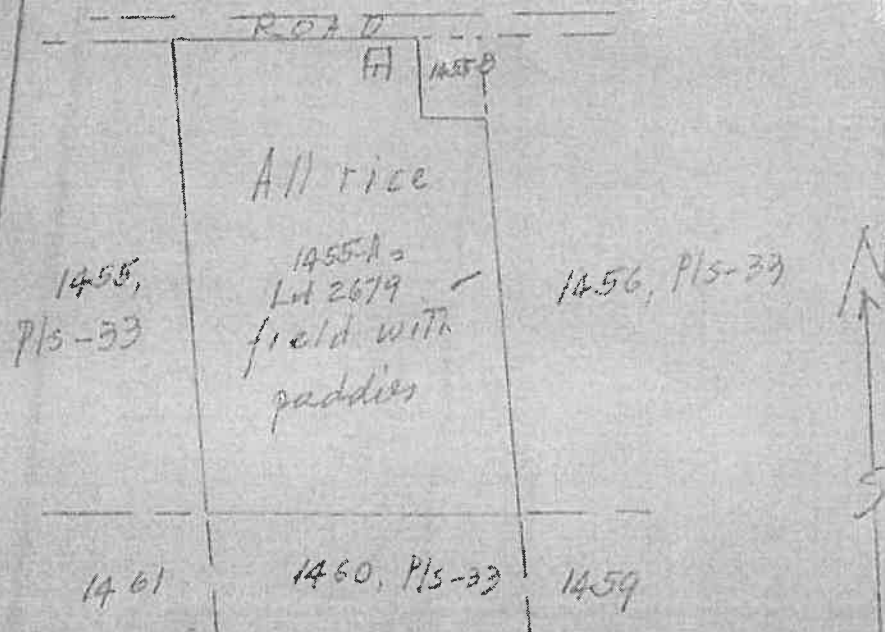 ROAD
1455-B
All rice
1455-A =
Lot 2679
field with
paddies
1455,
Pls-33
1456, Pls-33
N
S
1461
1460, Pls-33
1459